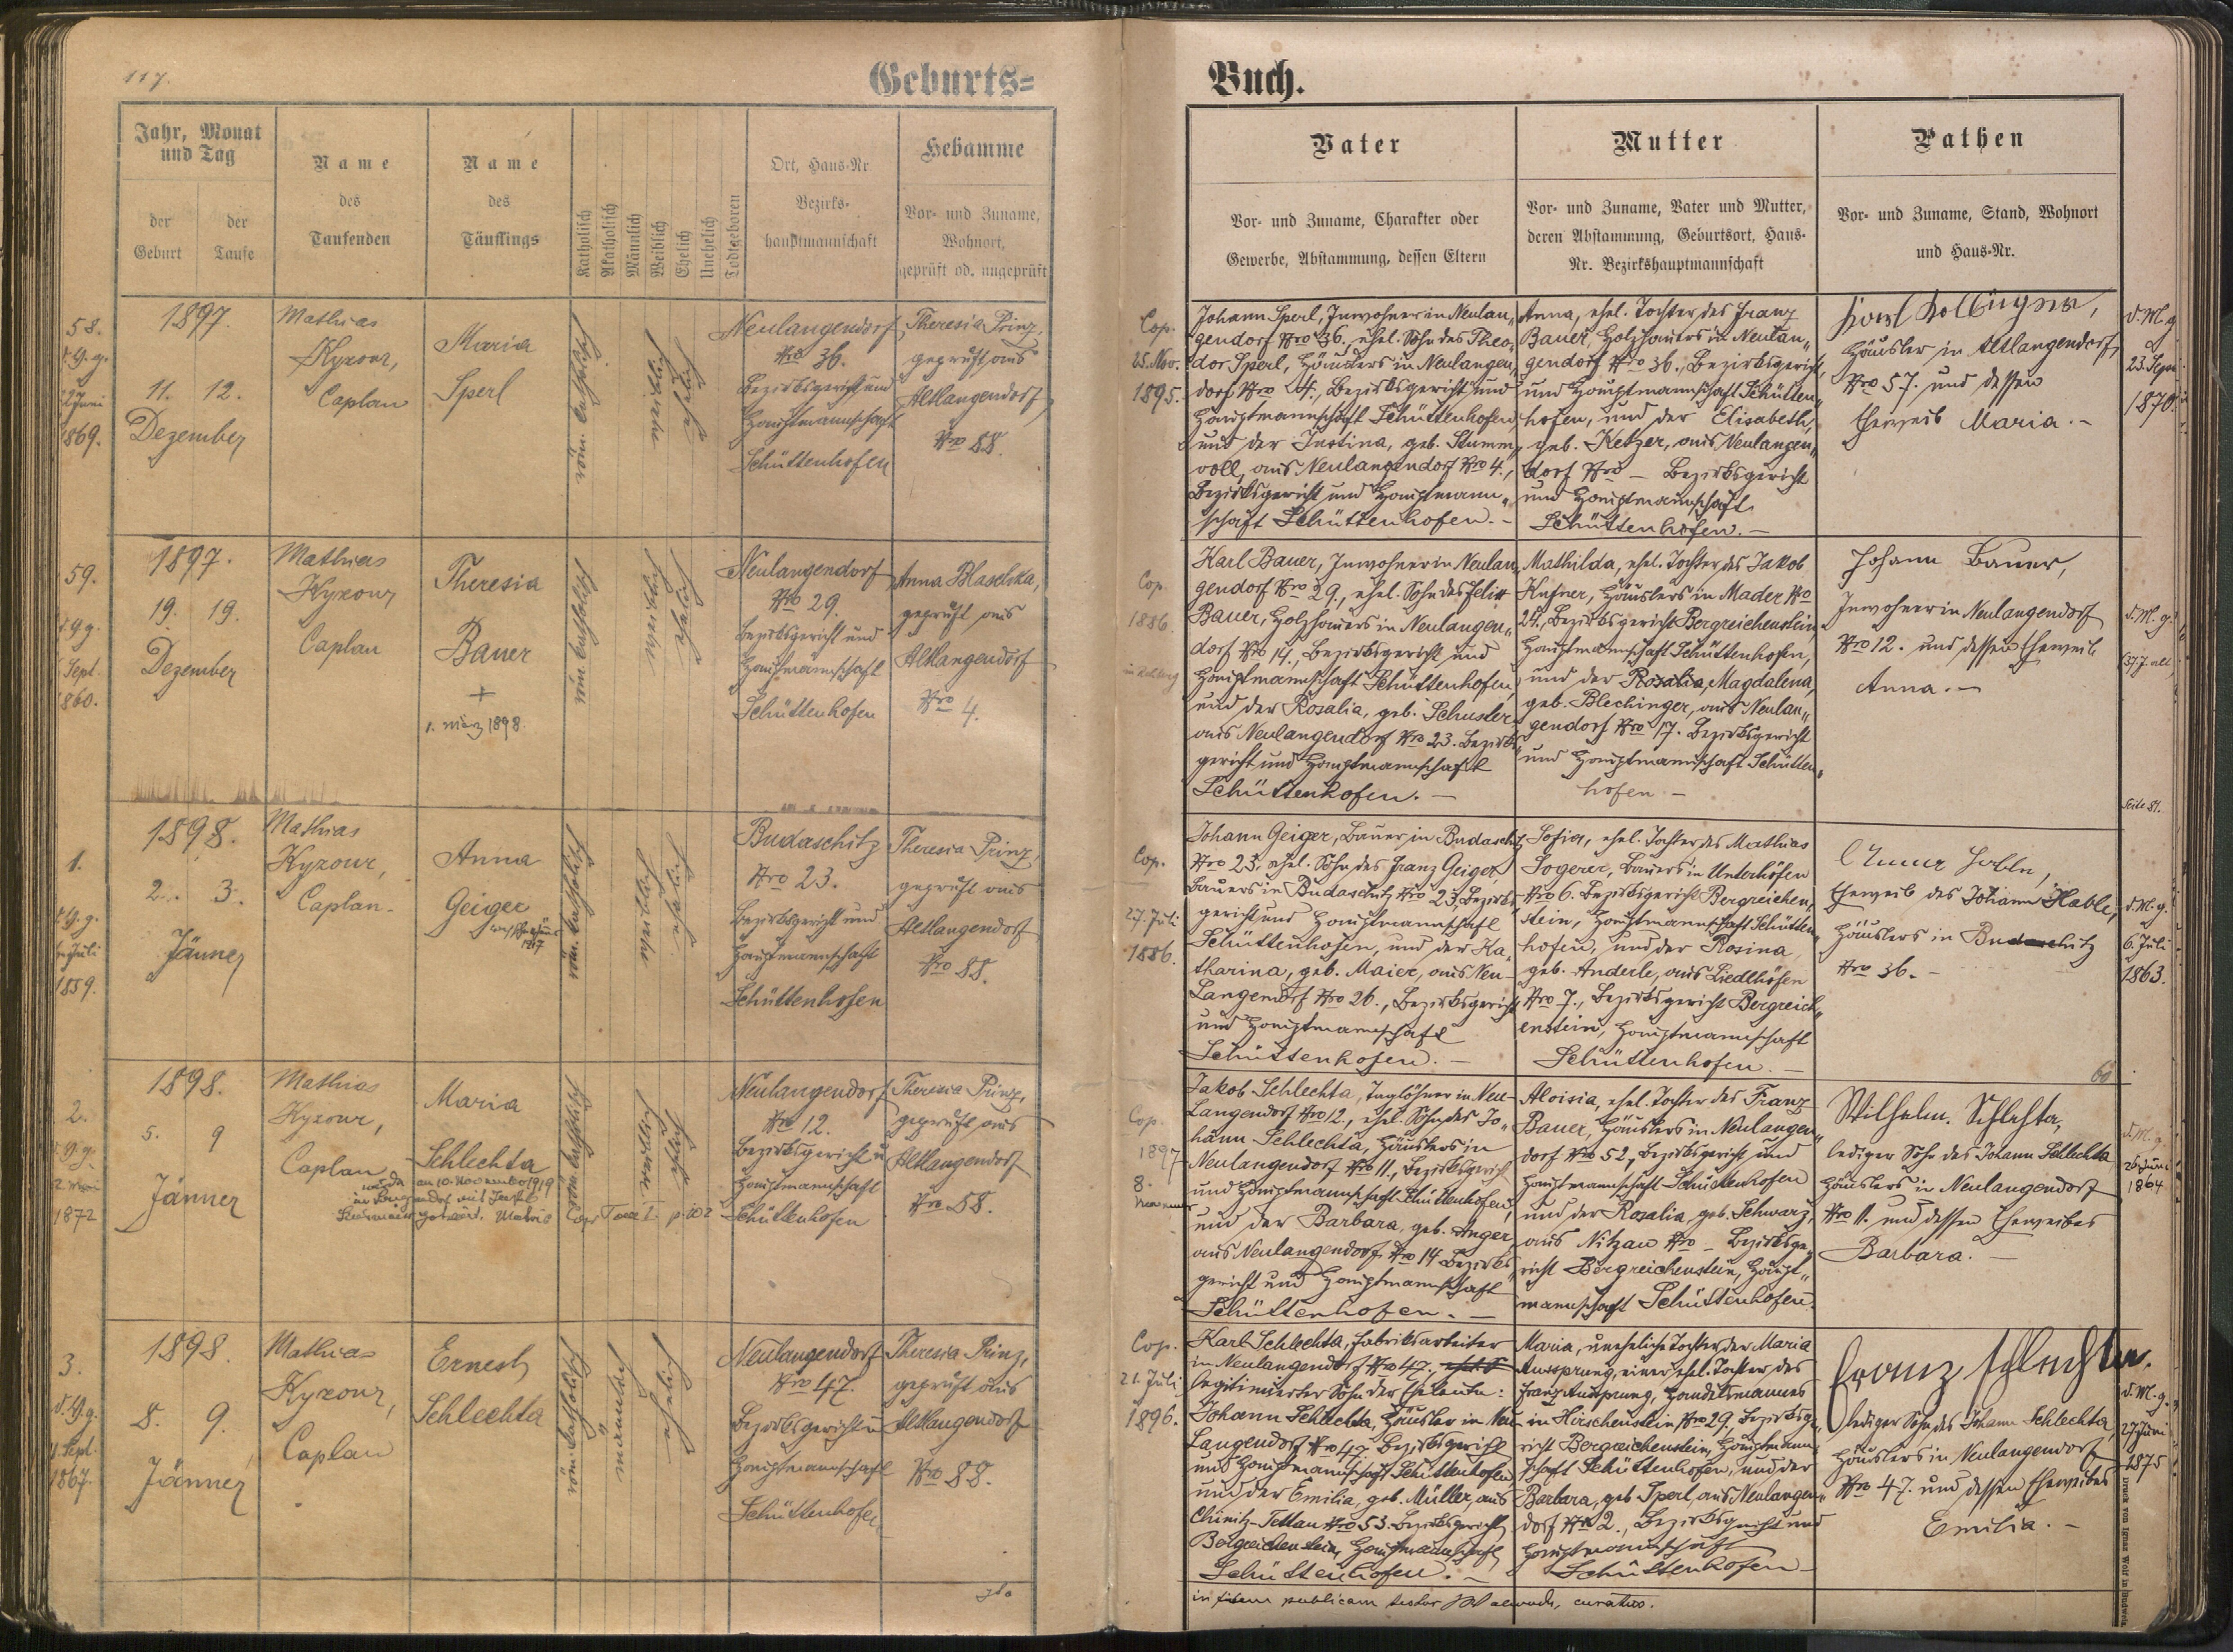 117.
Geburts=
Jahr, Monat
und Tag
der
Geburt
der
Taufe
Name
des
Taufenden
Name
des
Täuflings
Katholisch
Akatholisch
Männlich
Weiblich
Ehelich
Unehelich
Todtgeboren
Ort, Haus-Nr
Bezirks-
hauptmannschaft
Hebamme
Vor- und Zuname,
Wohnort,
geprüft od. ungeprüft
58.
1869.
1897.
11. 12.
Dezember
Mathias
Kyzour,
Caplan
Maria
Sperl
röm. katholisch
weiblich
ehelich
Neulangendorf
Nro 36.
Bezirksgericht und
Hauptmannschaft
Schüttenhofen
Theresia Prinz,
geprüft aus
Altlangendorf
Nro 88.
59.
Sept.
1860.
1897.
19. 19.
Dezember
Mathias
Kyzour
Caplan
Theresia
Bauer
+
1. März 1898.
röm. katholisch
weiblich
ehelich
Neulangendorf
Nro 29.
Bezirksgericht und
Hauptmannschaft
Schüttenhofen
Anna Blaschka,
geprüft aus
Altlangendorf
Nro 4.
1.
Juli
1859.
1898.
2. 3.
Jänner
Mathias
Kyzour,
Caplan.
Anna
Geiger
1917
röm. katholisch
weiblich
ehelich
Budaschitz
Nro 23.
Bezirksgericht und
Hauptmannschaft
Schüttenhofen
Theresia Prinz,
geprüft aus
Altlangendorf
Nro 88.
2.
1872
1898.
5. 9
Jänner
Mathias
Kyzour,
Caplan
Maria
Schlechta
am 10. November 1919
röm. katholisch
weiblich
ehelich
Neulangendorf
Nro 12.
Bezirksgericht u
Hauptmannschaft
Schüttenhofen
Theresia Prinz,
geprüft aus
Altlangendorf
Nro 58.
3.
Sept.
1867.
1898.
8. 9.
Jänner
Mathias
Kyzour,
Caplan
Ernest
Schlechta
röm. katholisch
männlich
ehelich
Neulangendorf
Nro 47.
Bezirksgericht u
Hauptmannschaft
Schüttenhofen
Theresia Prinz,
geprüft aus
Altlangendorf
Nro 88.
Buch.
Vater
Vor- und Zuname, Charakter oder
Gewerbe, Abstammung, dessen Eltern
Mutter
Vor- und Zuname, Vater und Mutter,
deren Abstammung, Geburtsort, Haus-
Nr. Bezirkshauptmannschaft
Pathen
Vor- und Zuname, Stand, Wohnort
und Haus-Nr.
Cop.
25. Nov.
1895.
Johann Sperl, Inwohner in Neulan„
gendorf Nro 36. ehel. Sohn des Theo„
dor Sperl, Häuslers in Neulangen„
dorf Nro 4., Bezirksgericht und
Hauptmannschaft Schüttenhofen
und der Justina, geb. Stumm„
voll, aus Neulangendorf Nro 4.,
Bezirksgericht und Hauptmann„
schaft Schüttenhofen. –
Anna, ehel. Tochter des Franz
Bauer, Holzhauers in Neulan„
gendorf Nro 36., Bezirksgericht,
und Hauptmannschaft Schütten„
hofen, und der Elisabeth,
geb. Ketzer, aus Neulangen„
dorf Nro – Bezirksgericht
und Hauptmannschaft
Schüttenhofen. –
Häusler in Altlangendorf
Nro 57. und dessen
Eheweib Maria. –
d. M. g.
23. Sept.
1870.
Cop.
1886.
Karl Bauer, Inwohner in Neulan„
gendorf Nro 29., ehel. Sohn des Felix
Bauer, Holzhauers in Neulangen„
dorf Nro 14., Bezirksgericht und
Hauptmannschaft Schüttenhofen,
und der Rosalia, geb. Schuster
aus Neulangendorf Nro 23. Bezirks„
gericht und Hauptmannschaft
Schüttenhofen. –
Mathilda, ehel. Tochter des Jakob
Kufner, Häuslers in Mader Nro
24., Bezirksgericht Bergreichenstein,
Hauptmannschaft Schüttenhofen,
und der Rosalia, Magdalena,
geb. Blechinger, aus Neulan„
gendorf Nro 17. Bezirksgericht
und Hauptmannschaft Schütten„
hofen –
Johann Bauer,
Inwohner in Neulangendorf
Nro 12. und dessen Eheweib
Anna. –
d. M. g.
Seite 81.
Cop.
27. Juli
1886.
Johann Geiger, Bauer in Budaschitz
Nro 23. ehel. Sohn des Franz Geiger,
Bauers in Budaschitz Nro 23, Bezirks„
gericht und Hauptmannschaft
Schüttenhofen, und der Ka„
tharina, geb. Maier, aus Neu-
Langendorf Nro 26., Bezirksgericht
und Hauptmannschaft
Schüttenhofen. –
Sofia, ehel. Tochter des Mathias
Sogerer, Bauers in Unterhöfen
Nro 6. Bezirksgericht Bergreichen„
stein, Hauptmannschaft Schütten„
hofen, und der Rosina
geb. Anderle, aus Liedlhöfen
Nro 7., Bezirksgericht Bergreich„
enstein, Hauptmannschaft
Schüttenhofen. –
Eheweib des Johann Hable,
Häuslers in Budaschitz
Nro 36. –
d. M. g.
6. Juli
1863.
60
Cop.
1897
8.
Jakob Schlechta, Taglöhner in Neu-
Langendorf Nro 12., ehel. Sohn des Jo„
hann Schlechta, Häuslers in
Neulangendorf Nro 11., Bezirksgericht
und Hauptmannschaft Schüttenhofen,
und der Barbara, geb. Anger
aus Neulangendorf Nro 14 Bezirks„
gericht und Hauptmannschaft
Schüttenhofen. –
Aloisia, ehel. Tochter des Franz
Bauer, Häuslers in Neulangen„
dorf Nro 52, Bezirksgericht und
Hauptmannschaft Schüttenhofen
und der Rosalia, geb. Schwarz,
aus Nitzau Nro – Bezirksge„
richt Bergreichenstein, Haupt„
mannschaft Schüttenhofen.
Wilhelm Schlechta,
lediger Sohn des Johann Schlechta
Häuslers in Neulangendorf
Nro 11. und dessen Eheweibes
Barbara. –
d. M. g.
1864
Cop.
21. Juli
1896.
Karl Schlechta, Fabriksarbeiter
in Neulangendorf Nro 47.
legitimierter Sohn der Eheleute:
Johann Schlechta, Häusler in Neu-
Langendorf Nro 47. Bezirksgericht
und Hauptmannschaft Schüttenhofen,
und der Emilia, geb. Müller, aus
Chinitz-Tettau Nro 53. Bezirksgericht
Bergreichenstein, Hauptmannschaft
Schüttenhofen. –
Maria, uneheliche Tochter der Maria
Aussprung, einer ehel. Tochter des
Franz Aussprung, Handelsmannes
in Hirschenstein Nro 29, Bezirksge„
richt Bergreichenstein, Hauptmann„
schaft Schüttenhofen, und der
Barbara, geb. Sperl, aus Neulangen„
dorf Nro 2., Bezirksgericht und
Hauptmannschaft
Schüttenhofen –
Franz Schlechta.
lediger Sohn des Johann Schlechta,
Häuslers in Neulangendorf
Nro 47. und dessen Eheweibes
Emilia. –
d. M. g.
27 Juni
1875
in fidem publicam testor
Druck von Ignaz Wolf in Budweis.